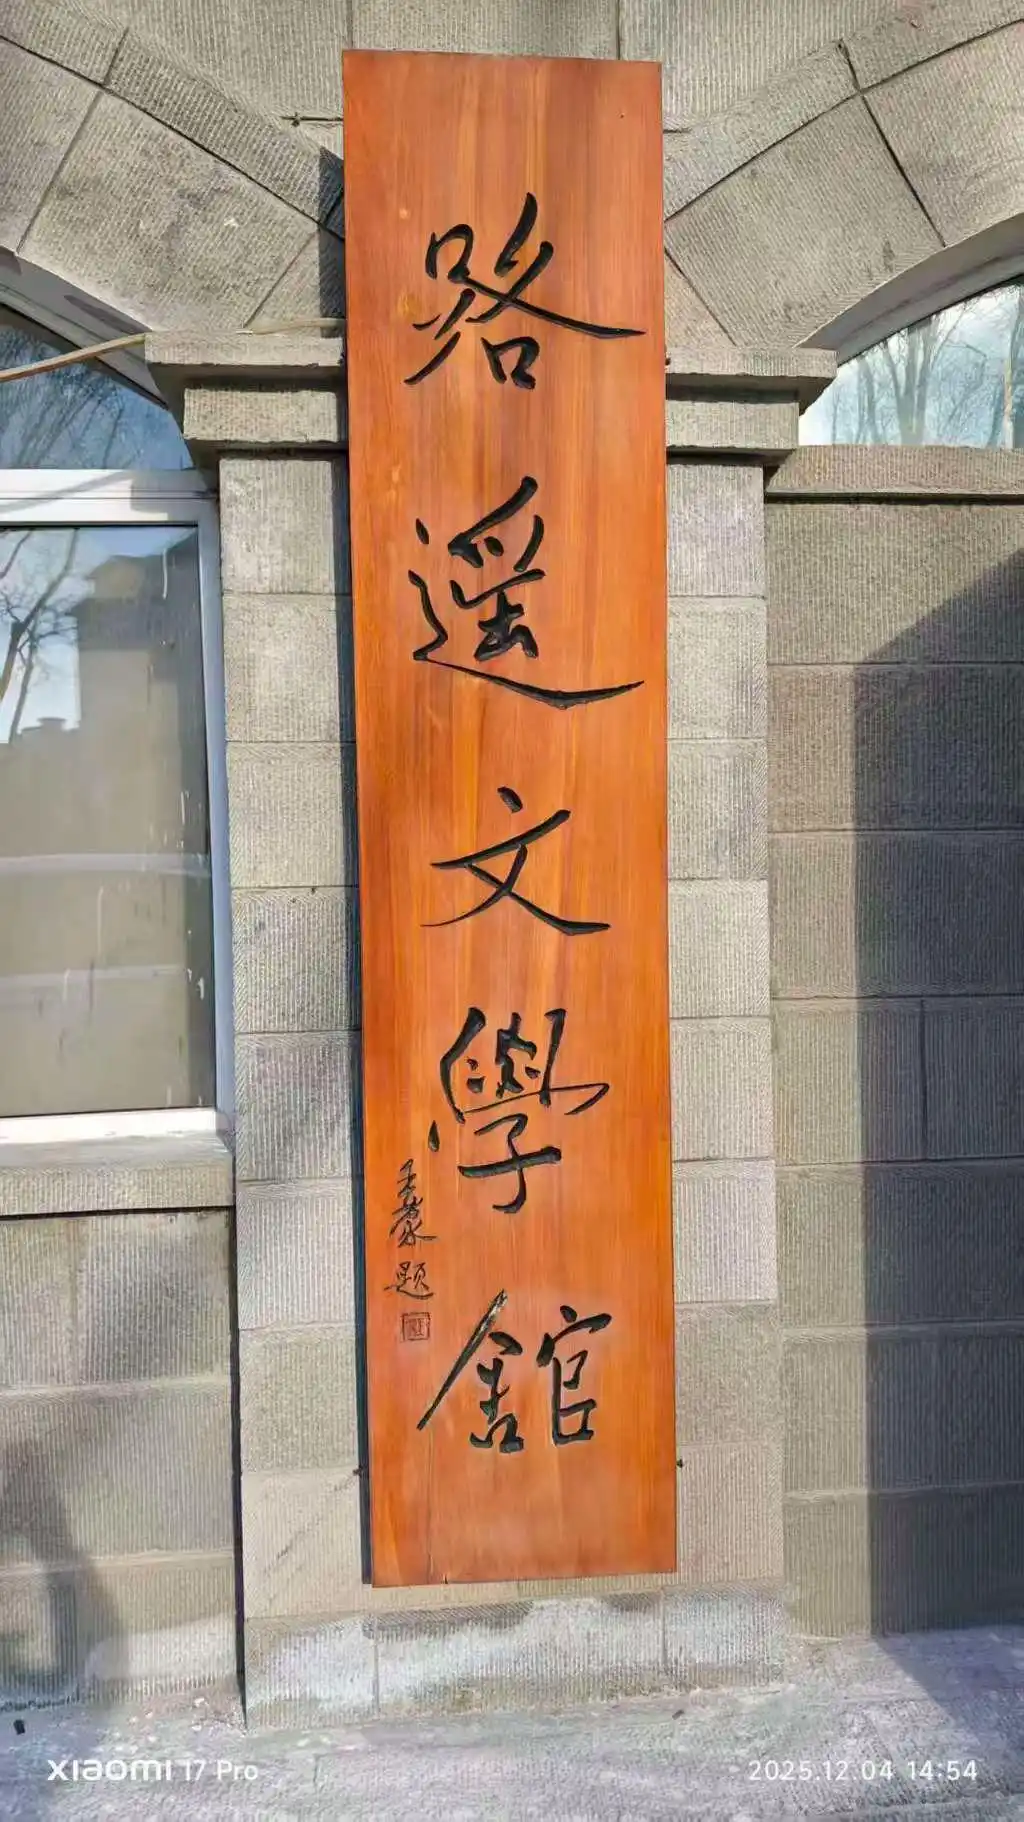 路遥文學舘
王蒙题
xiaomi 17 Pro
2025.12.04 14:54